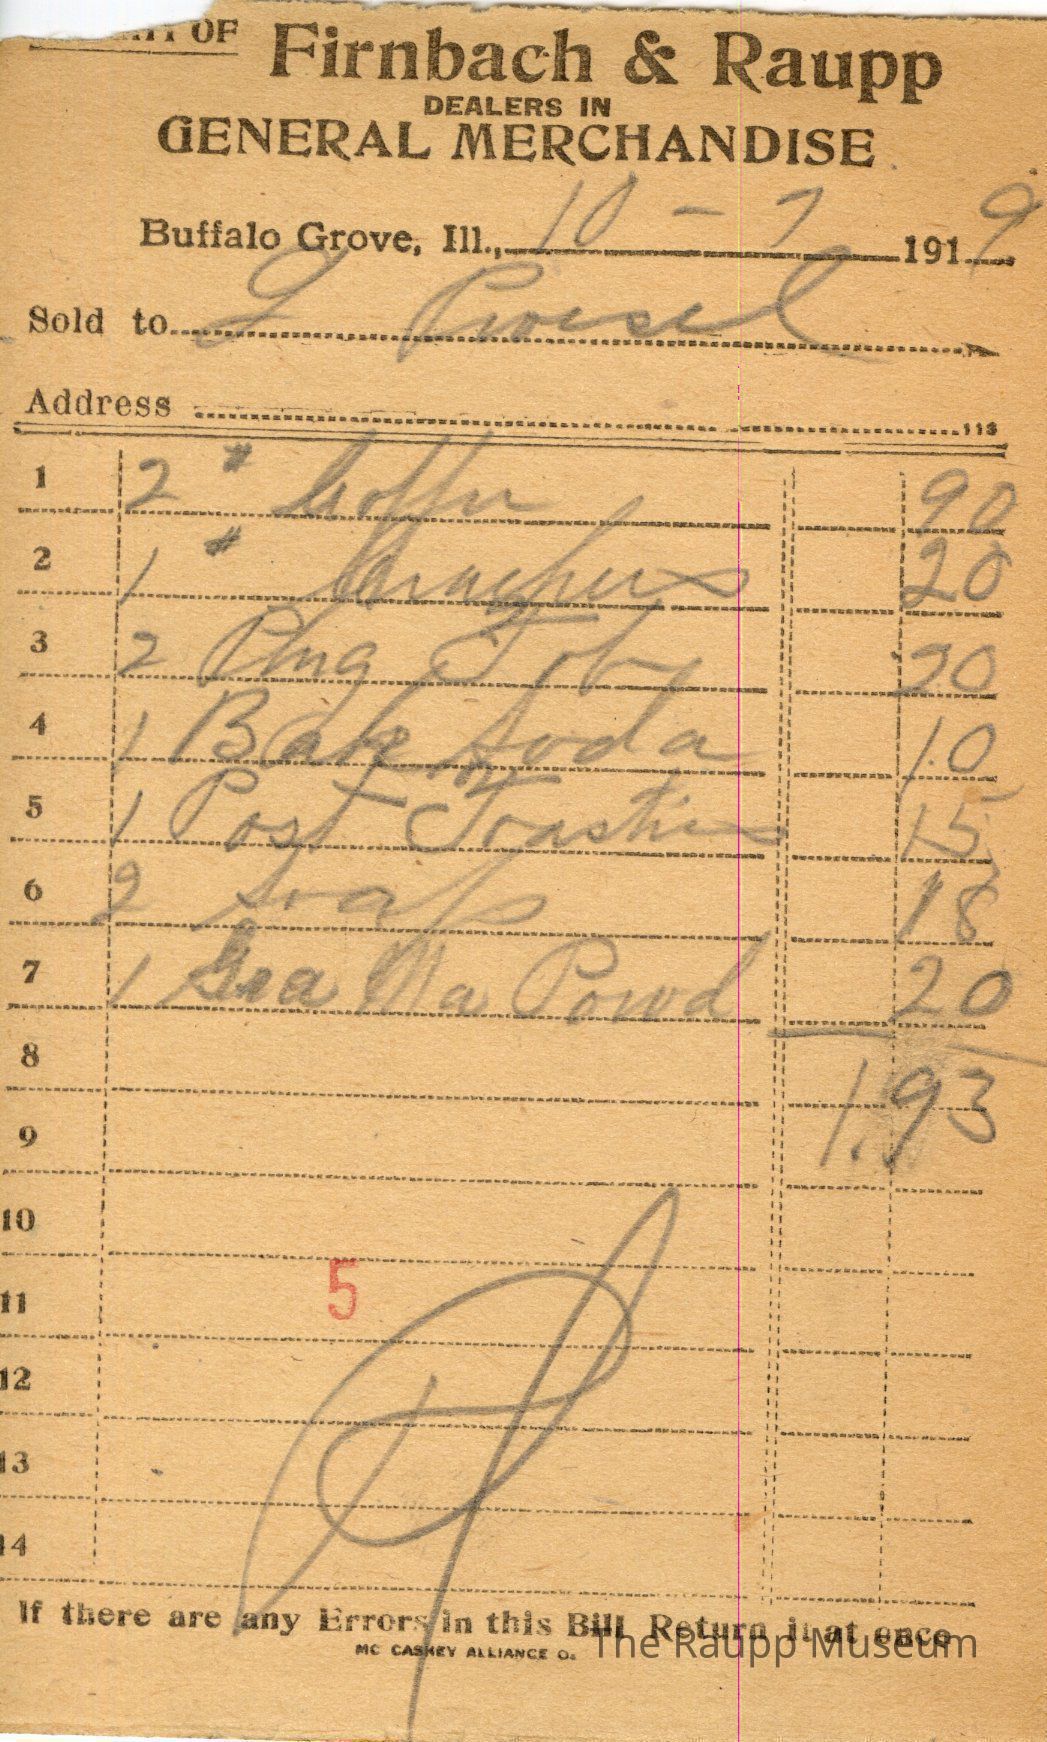 OF Firnbach & Raupp
DEALERS IN
GENERAL MERCHANDISE
Buffalo Grove, Ill., 10 - 7 1919
Sold to
Address 113
1 2 # Coffee 90
2 1 # Crackers 20
3 2 Plug Tob 20
4 1 Bak Soda 10
5 1 Post Toasties 15
6 2 Soap 18
7 1 Gra Ma Powd 20
8 1.93
9
10
11 5
12
13
14
If there are any Errors in this Bill Return it at once
MC CASKEY ALLIANCE O.
The Raupp Museum